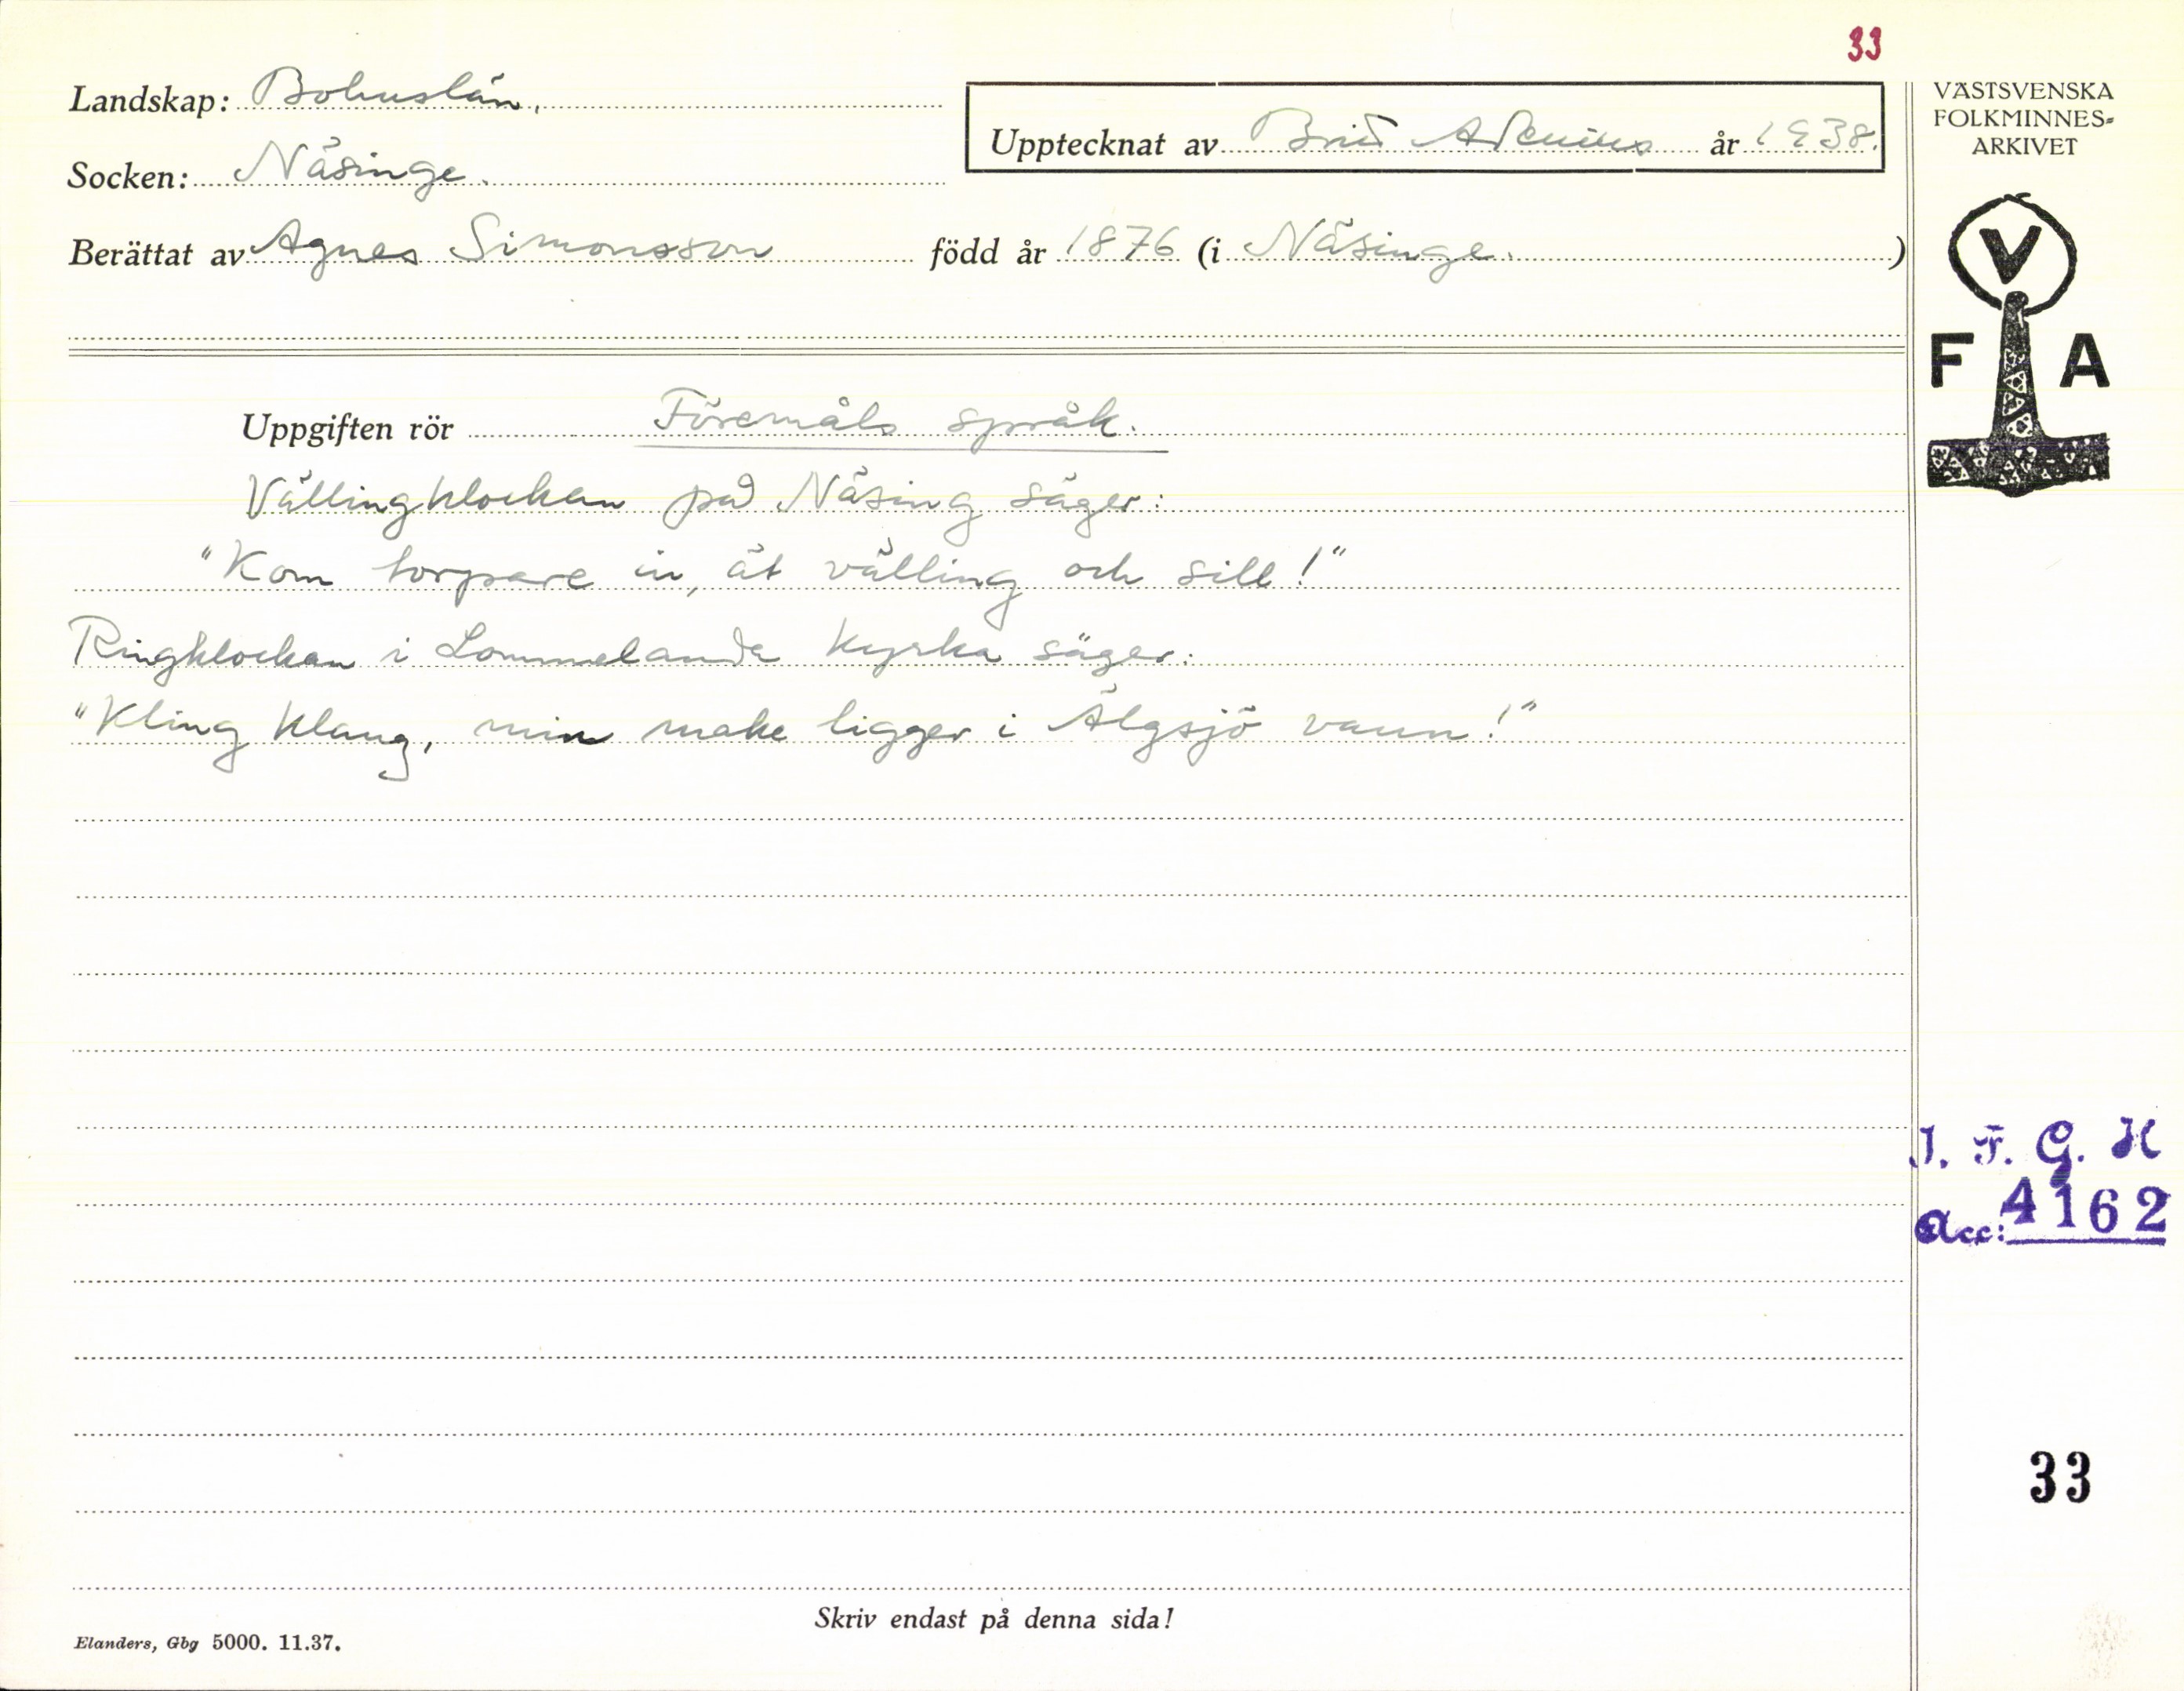 33
Landskap: Bohuslän.
Upptecknat av Brit år 1938.
Socken: Näsinge.
Berättat av Agnes Simonsson född år 1876 (i Näsinge.)
VÄSTSVENSKA
FOLKMINNES-
ARKIVET
V
F A
Uppgiften rör Föremåls språk.
Vällingklockan på Näsing säger:
"Kom torpare in, ät välling och sill!"
Ringklockan i Lommelanda kyrka säger:
"Kling klang, min make ligger i Älgsjö vann!"
I. F. G. H
Acc: 4162
33
Skriv endast på denna sida!
Elanders, Gbg 5000. 11.37.